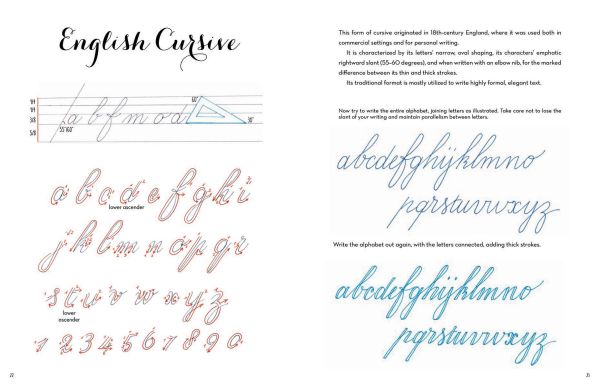 English Cursive
1/4
1/4
3/8
5/8
a b f m o d
60°
30°
55°60°
a b c d e f g h i
lower ascender
j k l m n o p q r
s t u v w x y z
lower
ascender
1 2 3 4 5 6 7 8 9 0
22
This form of cursive originated in 18th-century England, where it was used both in
commercial settings and for personal writing.
It is characterized by its letters' narrow, oval shaping, its characters' emphatic
rightward slant (55–60 degrees), and when written with an elbow nib, for the marked
difference between its thin and thick strokes.
Its traditional format is mostly utilized to write highly formal, elegant text.
Now try to write the entire alphabet, joining letters as illustrated. Take care not to lose the
slant of your writing and maintain parallelism between letters.
abcdefghijklmno
pqrstuvwxyz
Write the alphabet out again, with the letters connected, adding thick strokes.
abcdefghijklmno
pqrstuvwxyz